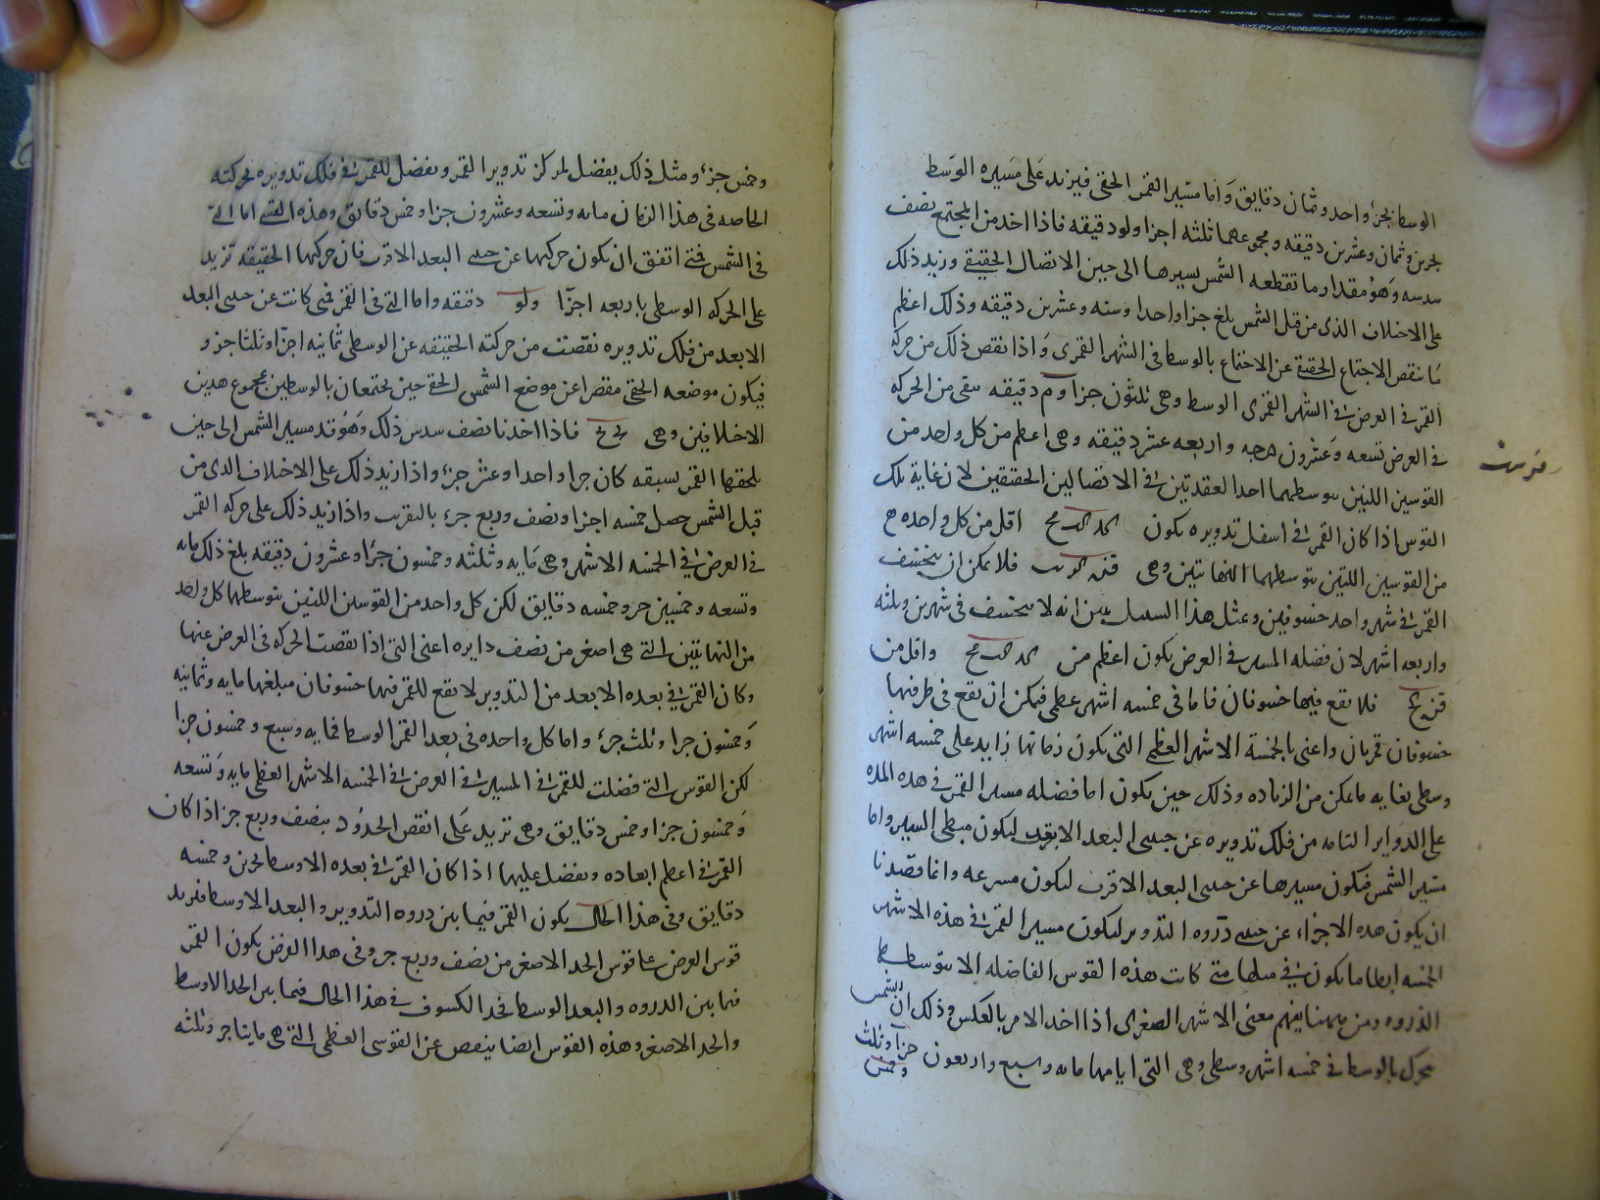 الوسط بجزء واحد وثمان دقايق واما مسير القمر الحقى فيزيد على مسيره الوسط
بجزين وثمان وعشرين دقيقه ومجموعهما ثلثه اجزا ولو دقيقه فاذا اخد من المجتمع نصف
سدسه وهو مقدار ما تقطعه الشمس بسيرها الى حين الاتصال الحقيقى وزيد ذلك
على الاختلاف الذى من قبل الشمس بلغ جزا واحدا وسته وعشرين دقيقه وذلك اعظم
ما ينقص الاجتماع الحقيقى عن الاجتماع بالوسط فى الشهر القمرى واذا نقص ذلك من حركة
القمر فى العرض فى الشهر القمرى الوسط وهى ثلثون جزا وم دقيقه بقى من الحركه
فى العرض تسعه وعشرون درجه واربعه عشر دقيقه وهى اعظم من كل واحد من
القوسين اللتين يتوسطهما احدا العقدتين فى الاتصالين الحقيقين لان غاية تلك
القوس اذا كان القمر فى اسفل تدويره يكون اقل من كل واحده
من القوسين اللتين يتوسطهما النهايتين وهى فلا يمكن ان ينخسف
القمر فى شهر واحد خسوفين وبمثل هذا السبيل يبين انه لا ينخسف فى شهرين وثلثه
واربعه اشهر لان فضله المسير فى العرض يكون اعظم من واقل من
فلا يقع فيها خسوفان فاما فى خمسه اشهر عظمى فيمكن ان يقع فى طرفيها
خسوفان قمريان واعنى بالخمسة الاشهر العظمى التى يكون زمانها زايد على خمسه اشهر
وسطى بغايه ما يمكن من الزياده وذلك حين يكون اما فضله مسير القمر فى هذه المده
على الدواير التامه من فلك تدويره عن جنبتى البعد الابعد ليكون مبطى السير واما
مسير الشمس فيكون مسيرها عن جنبتى البعد الاقرب ليكون مسرعه وانما قصدنا
ان يكون هذه الاجزاء عن جنبتى ذروه التدوير ليكون مسير القمر فى هذه الاشهر
الخمسه ابطا ما يكون متى كانت هذه القوس الفاضله الا يتوسطها
الذروه ومن هاهنا يفهم معنى الاشهر الصغرى اذا اخد الامر بالعكس وذلك ان الشمس
تحرك بالوسط فى خمسه اشهر وسطى وهى التى ايامها مايه وسبع واربعون جزآ وثلث
وخمس
وخمس جزء ومثل ذلك يفضل لمركز تدوير القمر ويفضل للقمر فى فلك تدويره لحركته
الخاصه فى هذا الزمان مايه وتسعه وعشرون جزا وخمس دقايق وهذه القسى اما التى
فى الشمس فمتى اتفق ان يكون حركتها عن جنبتى البعد الاقرب فان حركتها الحقيقه تزيد
على الحركه الوسطى باربعه اجزآ ولو دقيقه واما التى فى القمر فمتى كانت عن جنبتى البعد
الابعد من فلك تدويره نقصت من حركته الحقيقه عن الوسطى ثمانيه اجزا وثلثا جزو
فيكون موضعه الحقيقى مقصرا عن موضع الشمس الحقى حين يجتمعان بالوسطين بمجموع هدين
الاختلافين وهى فاذا اخدنا نصف سدس ذلك وهو قد مسير الشمس الى حين
يلحقها القمر بسبقه كان جزا واحدا وعشر جزء واذا زيد ذلك على الاختلاف الدى من
قبل الشمس حصل خمسه اجزا ونصف وربع جزء بالتقريب واذا زيد ذلك على حركه القمر
فى العرض فى الخمسه الاشهر وهى مايه وثلثه وخمسون جزءا وعشرون دقيقه بلغ ذلك مايه
وتسعه وخمسين جزو وخمسه دقايق لكن كل واحد من القوسين اللتين يتوسطهما كل واحد
من النهايتين التى هى اصغر من نصف دايره اعنى التى اذا نقصت الحركه فى العرض عنها
وكان القمر فى بعده الابعد من التدوير لا يقع للقمر فيها خسوفان مبلغها مايه وثمانيه
وخمسون جزا وثلث جزء واما كل واحده فى بعد القمر الوسط فمايه وسبع وخمسون جزا
لكن القوس التى فضلت للقمر فى المسير فى العرض فى الخمسه الاشهر العظمى مايه وتسعه
وخمسون جزا وخمس دقايق وهى تزيد على انقص الحدود بنصف وربع جزا اذا كان
القمر فى اعظم ابعاده ويفضل عليها اذا كان القمر فى بعده الاوسط بجزين وخمسه
دقايق وفى هذا الحال يكون القمر فيما بين ذروه التدوير والبعد الاوسط فتزيد
قوس العرض على قوس الحد الاصغر من نصف وربع جزو وفى هدا العرض يكون القمر
فيما بين الذروه والبعد الوسط فحد الكسوف فى هذا الحال فيما بين الحد الاوسط
والحد الاصغر وهذه القوس ايضا ينقص عن القوسى العظمى التى هى مايتا جزو وثلثه